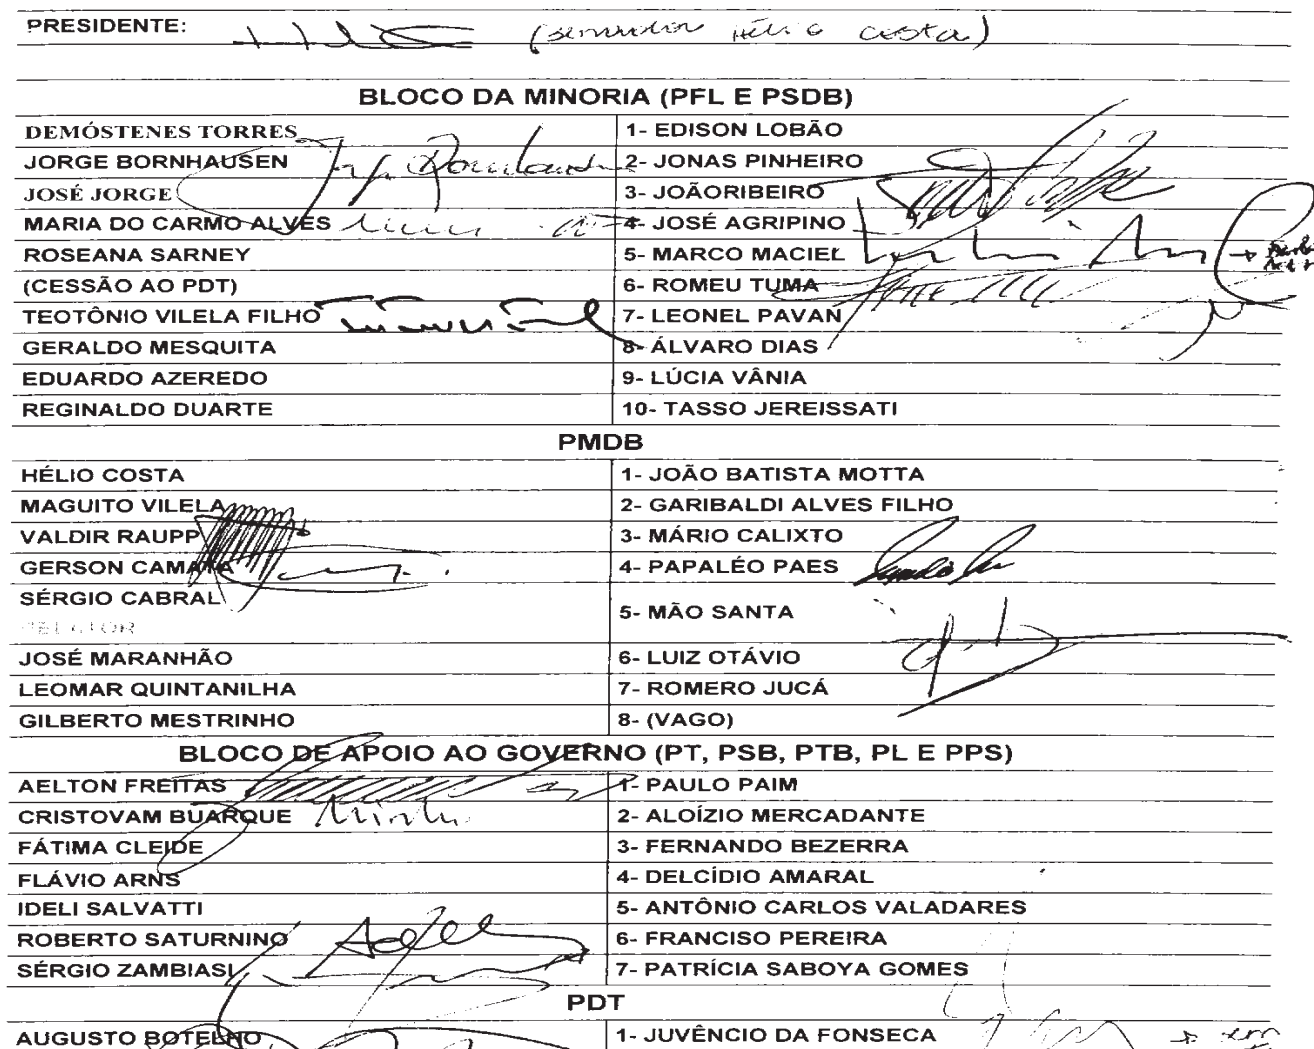 PRESIDENTE: (senador Hélio Costa)
BLOCO DA MINORIA (PFL E PSDB)
DEMÓSTENES TORRES 1- EDISON LOBÃO
JORGE BORNHAUSEN 2- JONAS PINHEIRO
JOSÉ JORGE 3- JOÃORIBEIRO
MARIA DO CARMO ALVES 4- JOSÉ AGRIPINO
ROSEANA SARNEY 5- MARCO MACIEL
(CESSÃO AO PDT) 6- ROMEU TUMA
TEOTÔNIO VILELA FILHO 7- LEONEL PAVAN
GERALDO MESQUITA 8- ÁLVARO DIAS
EDUARDO AZEREDO 9- LÚCIA VÂNIA
REGINALDO DUARTE 10- TASSO JEREISSATI
PMDB
HÉLIO COSTA 1- JOÃO BATISTA MOTTA
MAGUITO VILELA 2- GARIBALDI ALVES FILHO
VALDIR RAUPP 3- MÁRIO CALIXTO
GERSON CAMATA 4- PAPALÉO PAES
SÉRGIO CABRAL 5- MÃO SANTA
RELATOR
JOSÉ MARANHÃO 6- LUIZ OTÁVIO
LEOMAR QUINTANILHA 7- ROMERO JUCÁ
GILBERTO MESTRINHO 8- (VAGO)
BLOCO DE APOIO AO GOVERNO (PT, PSB, PTB, PL E PPS)
AELTON FREITAS 1- PAULO PAIM
CRISTOVAM BUARQUE 2- ALOÍZIO MERCADANTE
FÁTIMA CLEIDE 3- FERNANDO BEZERRA
FLÁVIO ARNS 4- DELCÍDIO AMARAL
IDELI SALVATTI 5- ANTÔNIO CARLOS VALADARES
ROBERTO SATURNINO 6- FRANCISO PEREIRA
SÉRGIO ZAMBIASI 7- PATRÍCIA SABOYA GOMES
PDT
AUGUSTO BOTELHO 1- JUVÊNCIO DA FONSECA